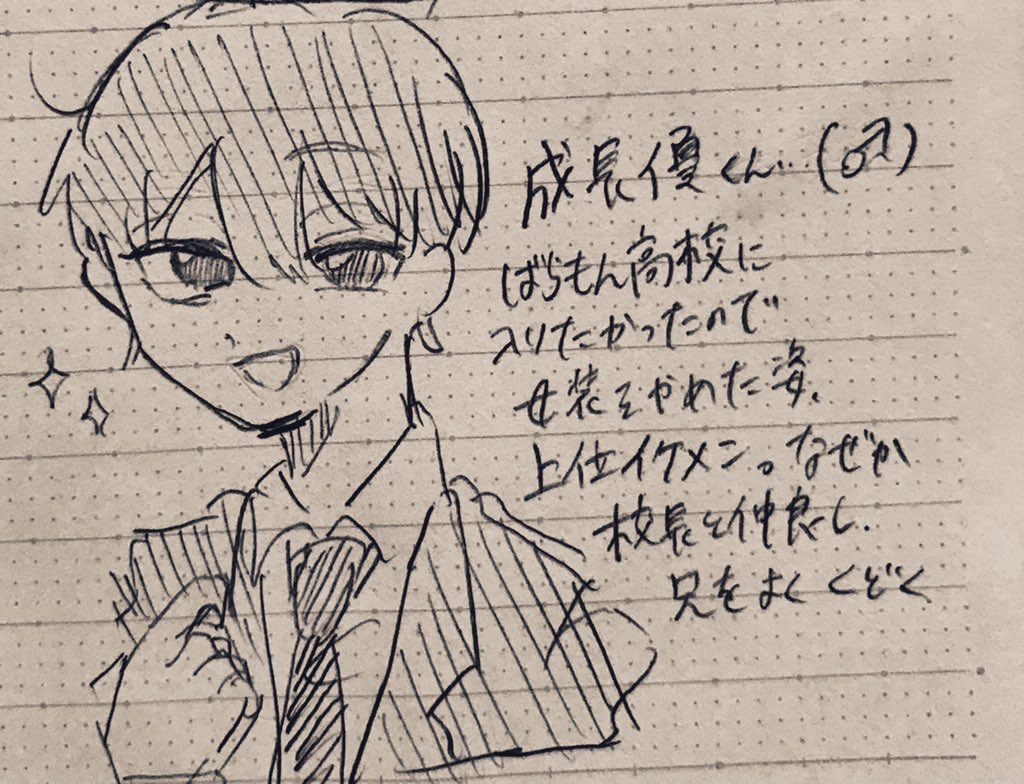 成長優くん (♂)
ばらもん高校に
入りたかったので
女装をやめた姿.
上位イケメン。なぜか
校長と仲良し.
兄をよくくどく